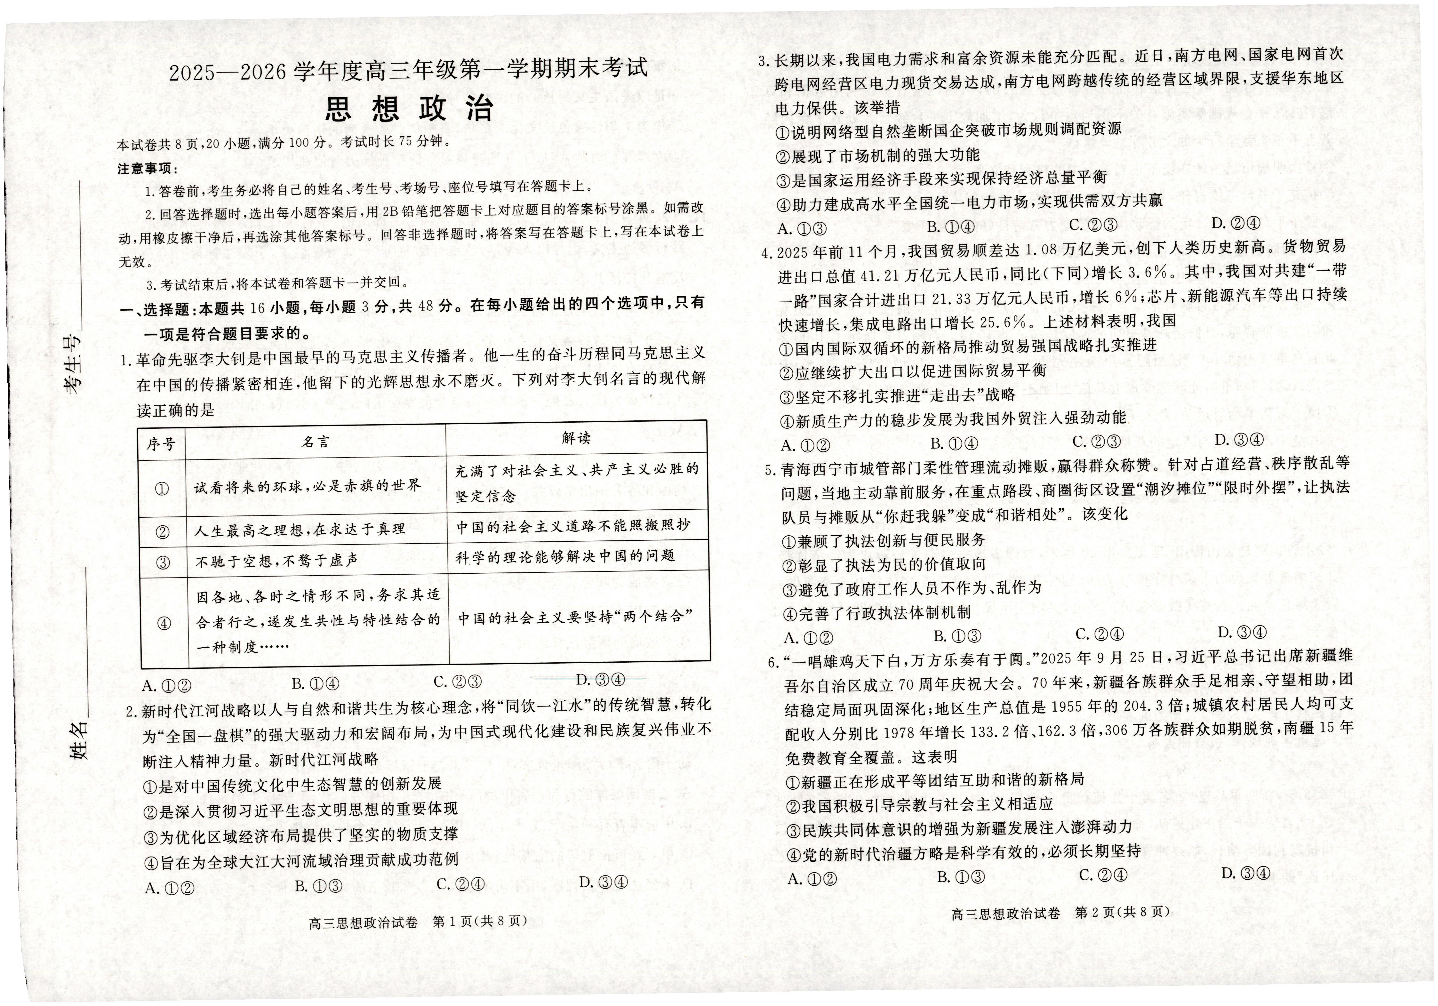 考生号
姓名
2025—2026学年度高三年级第一学期期末考试
思想政治
本试卷共8页,20小题,满分100分。考试时长75分钟。
注意事项:
1.答卷前,考生务必将自己的姓名、考生号、考场号、座位号填写在答题卡上。
2.回答选择题时,选出每小题答案后,用2B铅笔把答题卡上对应题目的答案标号涂黑。如需改
动,用橡皮擦干净后,再选涂其他答案标号。回答非选择题时,将答案写在答题卡上,写在本试卷上
无效。
3.考试结束后,将本试卷和答题卡一并交回。
一、选择题:本题共16小题,每小题3分,共48分。在每小题给出的四个选项中,只有
一项是符合题目要求的。
1.革命先驱李大钊是中国最早的马克思主义传播者。他一生的奋斗历程同马克思主义
在中国的传播紧密相连,他留下的光辉思想永不磨灭。下列对李大钊名言的现代解
读正确的是
序号 名言 解读
① 试看将来的环球,必是赤旗的世界 充满了对社会主义、共产主义必胜的
坚定信念
② 人生最高之理想,在求达于真理 中国的社会主义道路不能照搬照抄
③ 不驰于空想,不骛于虚声 科学的理论能够解决中国的问题
④ 因各地、各时之情形不同,务求其适
合者行之,遂发生共性与特性结合的 中国的社会主义要坚持“两个结合”
一种制度……
A.①② B.①④ C.②③ D.③④
2.新时代江河战略以人与自然和谐共生为核心理念,将“同饮一江水”的传统智慧,转化
为“全国一盘棋”的强大驱动力和宏阔布局,为中国式现代化建设和民族复兴伟业不
断注入精神力量。新时代江河战略
①是对中国传统文化中生态智慧的创新发展
②是深入贯彻习近平生态文明思想的重要体现
③为优化区域经济布局提供了坚实的物质支撑
④旨在为全球大江大河流域治理贡献成功范例
A.①② B.①③ C.②④ D.③④
高三思想政治试卷 第1页(共8页)
3.长期以来,我国电力需求和富余资源未能充分匹配。近日,南方电网、国家电网首次
跨电网经营区电力现货交易达成,南方电网跨越传统的经营区域界限,支援华东地区
电力保供。该举措
①说明网络型自然垄断国企突破市场规则调配资源
②展现了市场机制的强大功能
③是国家运用经济手段来实现保持经济总量平衡
④助力建成高水平全国统一电力市场,实现供需双方共赢
A.①③ B.①④ C.②③ D.②④
4.2025年前11个月,我国贸易顺差达1.08万亿美元,创下人类历史新高。货物贸易
进出口总值41.21万亿元人民币,同比(下同)增长3.6%。其中,我国对共建“一带
一路”国家合计进出口21.33万亿元人民币,增长6%;芯片、新能源汽车等出口持续
快速增长,集成电路出口增长25.6%。上述材料表明,我国
①国内国际双循环的新格局推动贸易强国战略扎实推进
②应继续扩大出口以促进国际贸易平衡
③坚定不移扎实推进“走出去”战略
④新质生产力的稳步发展为我国外贸注入强劲动能
A.①② B.①④ C.②③ D.③④
5.青海西宁市城管部门柔性管理流动摊贩,赢得群众称赞。针对占道经营、秩序散乱等
问题,当地主动靠前服务,在重点路段、商圈街区设置“潮汐摊位”“限时外摆”,让执法
队员与摊贩从“你赶我躲”变成“和谐相处”。该变化
①兼顾了执法创新与便民服务
②彰显了执法为民的价值取向
③避免了政府工作人员不作为、乱作为
④完善了行政执法体制机制
A.①② B.①③ C.②④ D.③④
6.“一唱雄鸡天下白,万方乐奏有于阗。”2025年9月25日,习近平总书记出席新疆维
吾尔自治区成立70周年庆祝大会。70年来,新疆各族群众手足相亲、守望相助,团
结稳定局面巩固深化;地区生产总值是1955年的204.3倍;城镇农村居民人均可支
配收入分别比1978年增长133.2倍、162.3倍,306万各族群众如期脱贫,南疆15年
免费教育全覆盖。这表明
①新疆正在形成平等团结互助和谐的新格局
②我国积极引导宗教与社会主义相适应
③民族共同体意识的增强为新疆发展注入澎湃动力
④党的新时代治疆方略是科学有效的,必须长期坚持
A.①② B.①③ C.②④ D.③④
高三思想政治试卷 第2页(共8页)